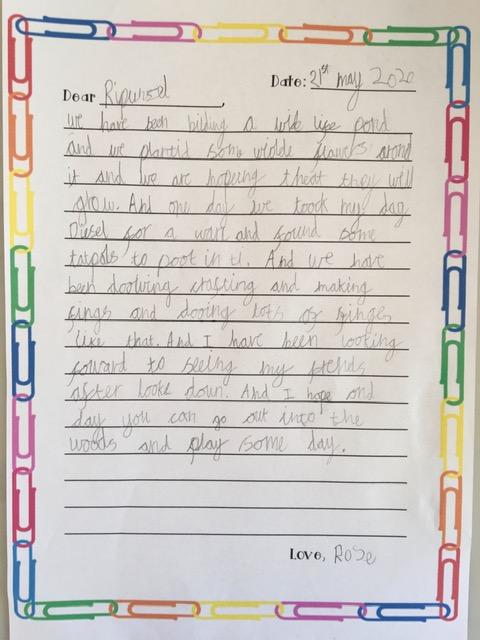 Date: 21st may 2020
Dear Ripunsel,
we have been bilding a wilde life pond
and we plantid some wilde flawers arond
it and we are hopeing theat they will
grow. And one day we toock my dag
Diesel for a warl and found some
tatpols to poot in ti. And we have
been dooiving crafting and making
fings and dooing lots of finges
like that. And I have been looking
forward to seeing my frends
after looks down. And I hope ond
day you can go out into the
woods and play some day.
Love, Rose